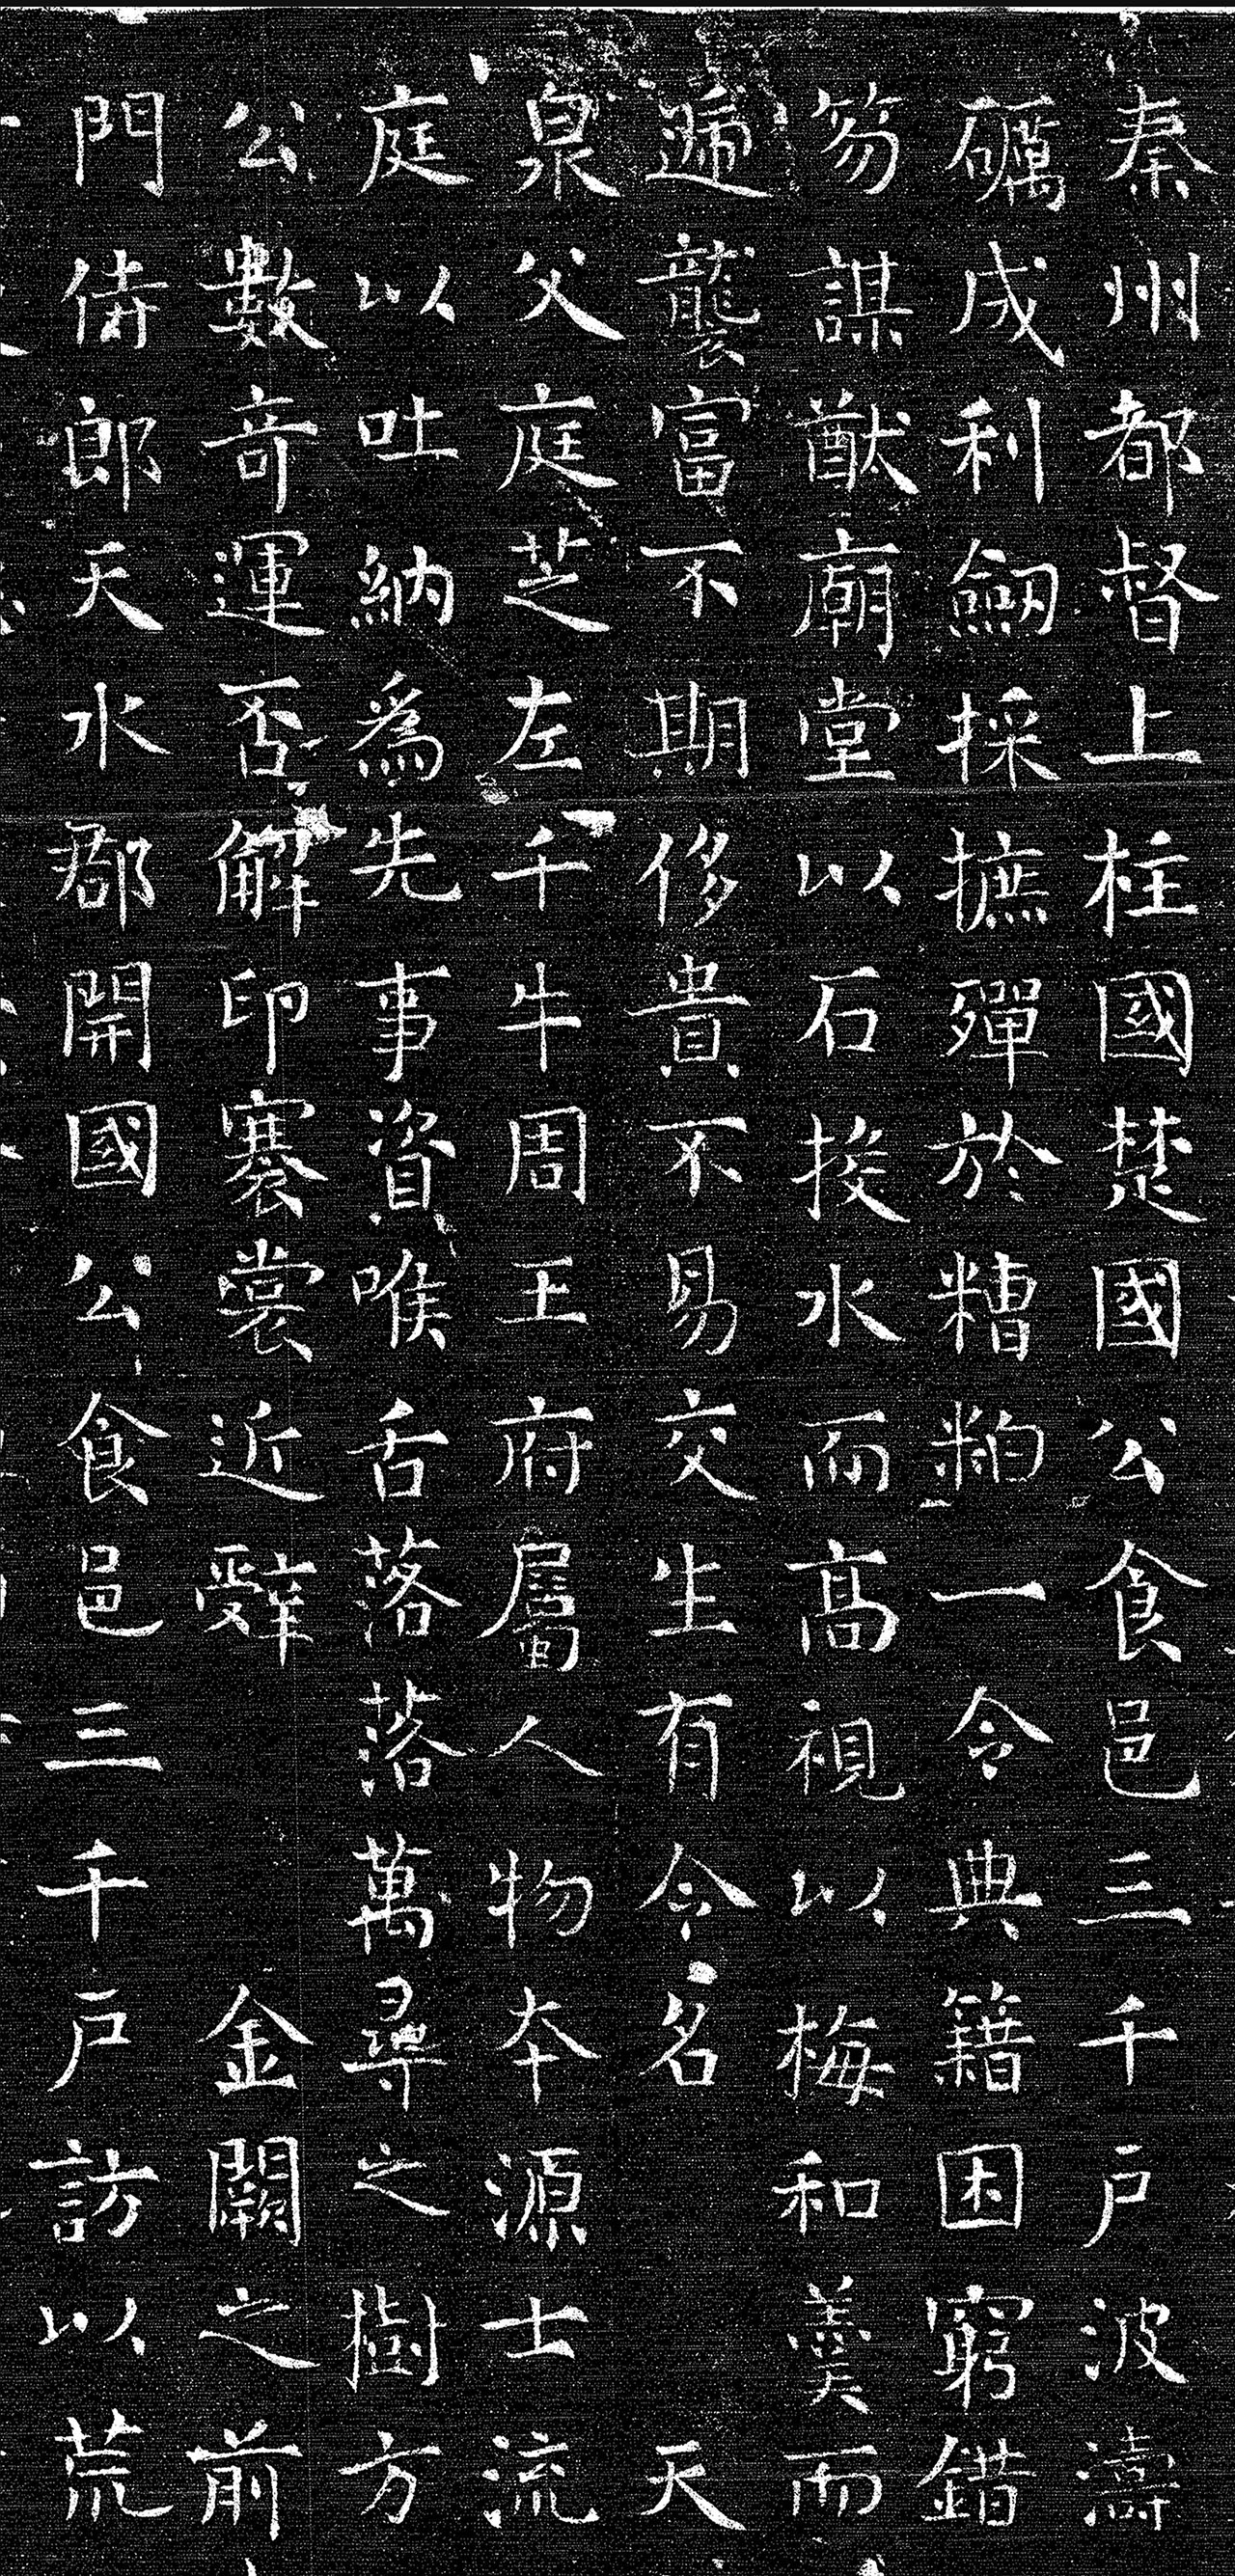 秦州都督上柱國楚國公食邑三千戶波濤
礪成利劒採摭殫於糟粕一令典籍困窮錯
笏謀猷廟堂以石投水而高視以梅和羹而
遞襲富不期侈貴不易交生有令名天
泉父庭芝左千牛周王府屬人物本源士流
庭以吐納爲先事資喉舌落落萬尋之樹方
公數奇運否解印褰裳近辭金闕之前
門侍郎天水郡開國公食邑三千戶訪以荒